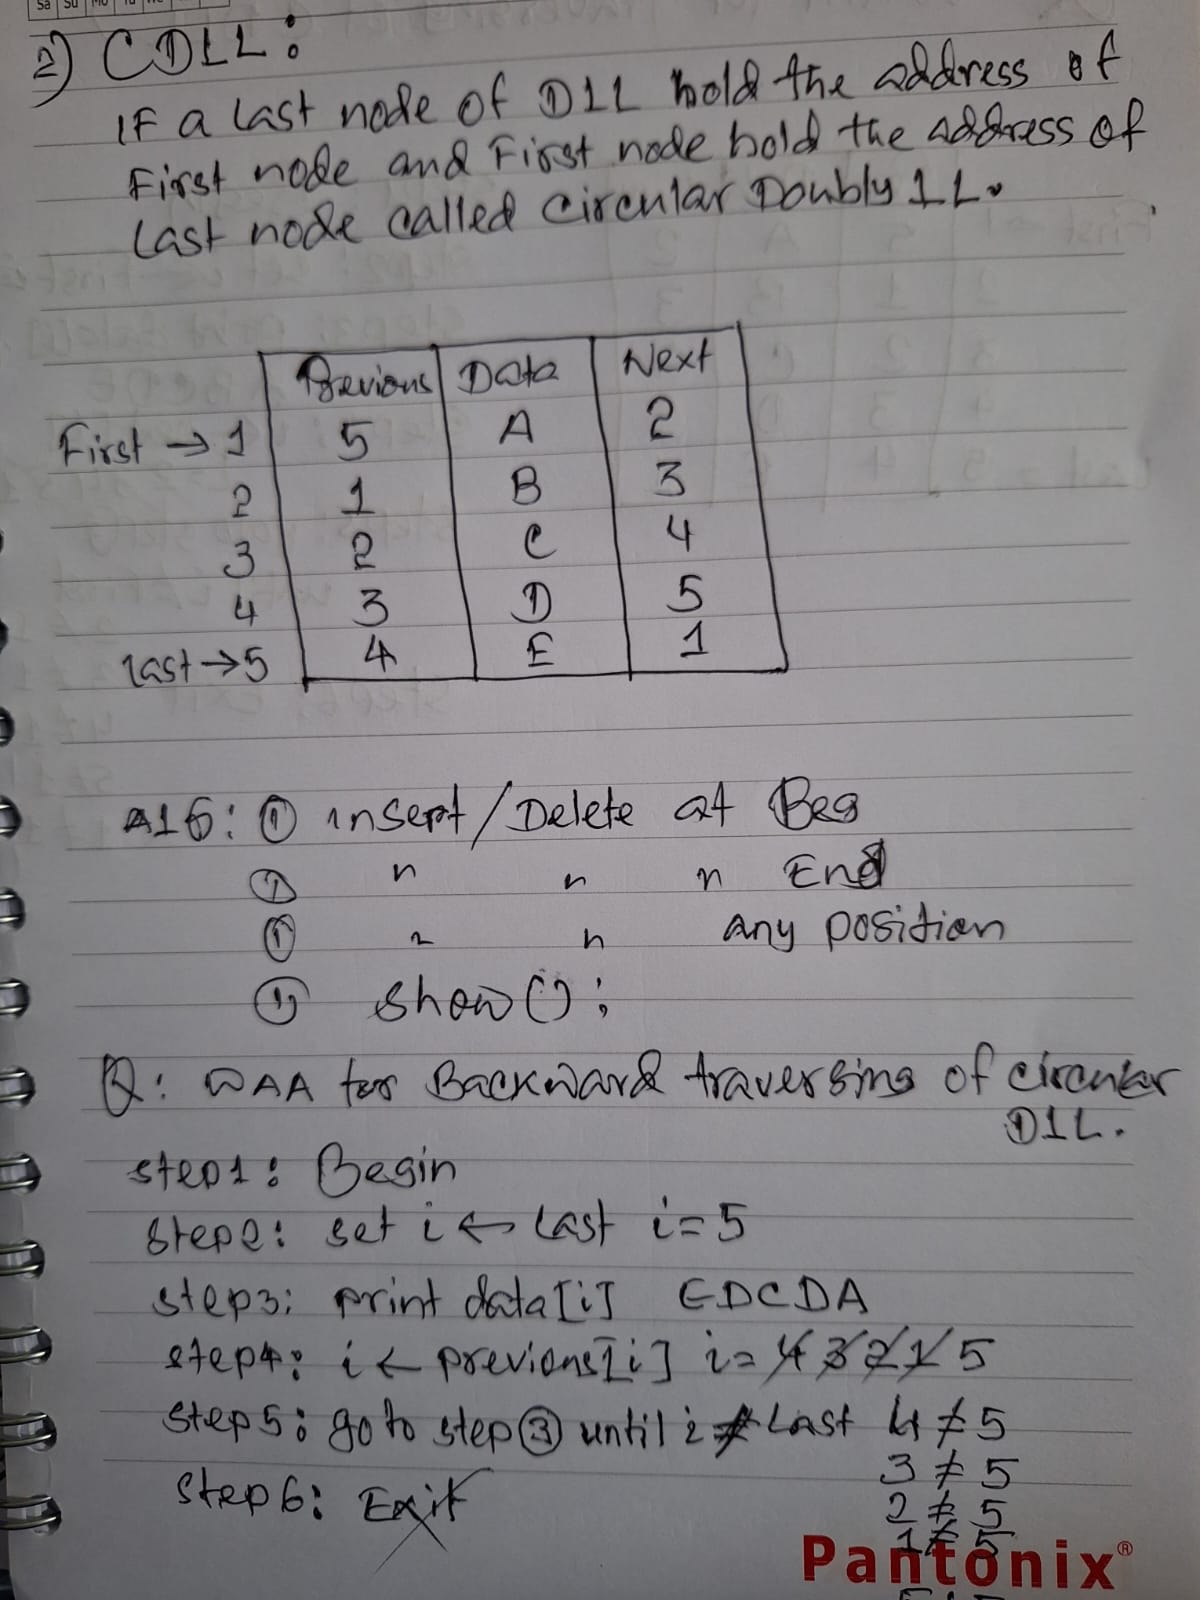 2) CDLL:
IF a last node of DLL hold the address of
First node and First node hold the address of
Last node called circular Doubly LL.
Previous Data Next
First → 1 5 A 2
2 1 B 3
3 2 C 4
4 3 D 5
Last → 5 4 E 1
ALG: ① insert/Delete at Beg
① " " " End
① " " any position
① show();
Q: WAA for Backward traversing of circular
DLL.
step1: Begin
step2: set i ← Last i=5
step3: print data[i] EDCDA
step4: i ← previous[i] i= 4 3 2 1 5
step5: go to step ③ until i ≠ Last 4 ≠ 5
3 ≠ 5
2 ≠ 5
1 ≠ 5
step6: Exit
Pantonix®